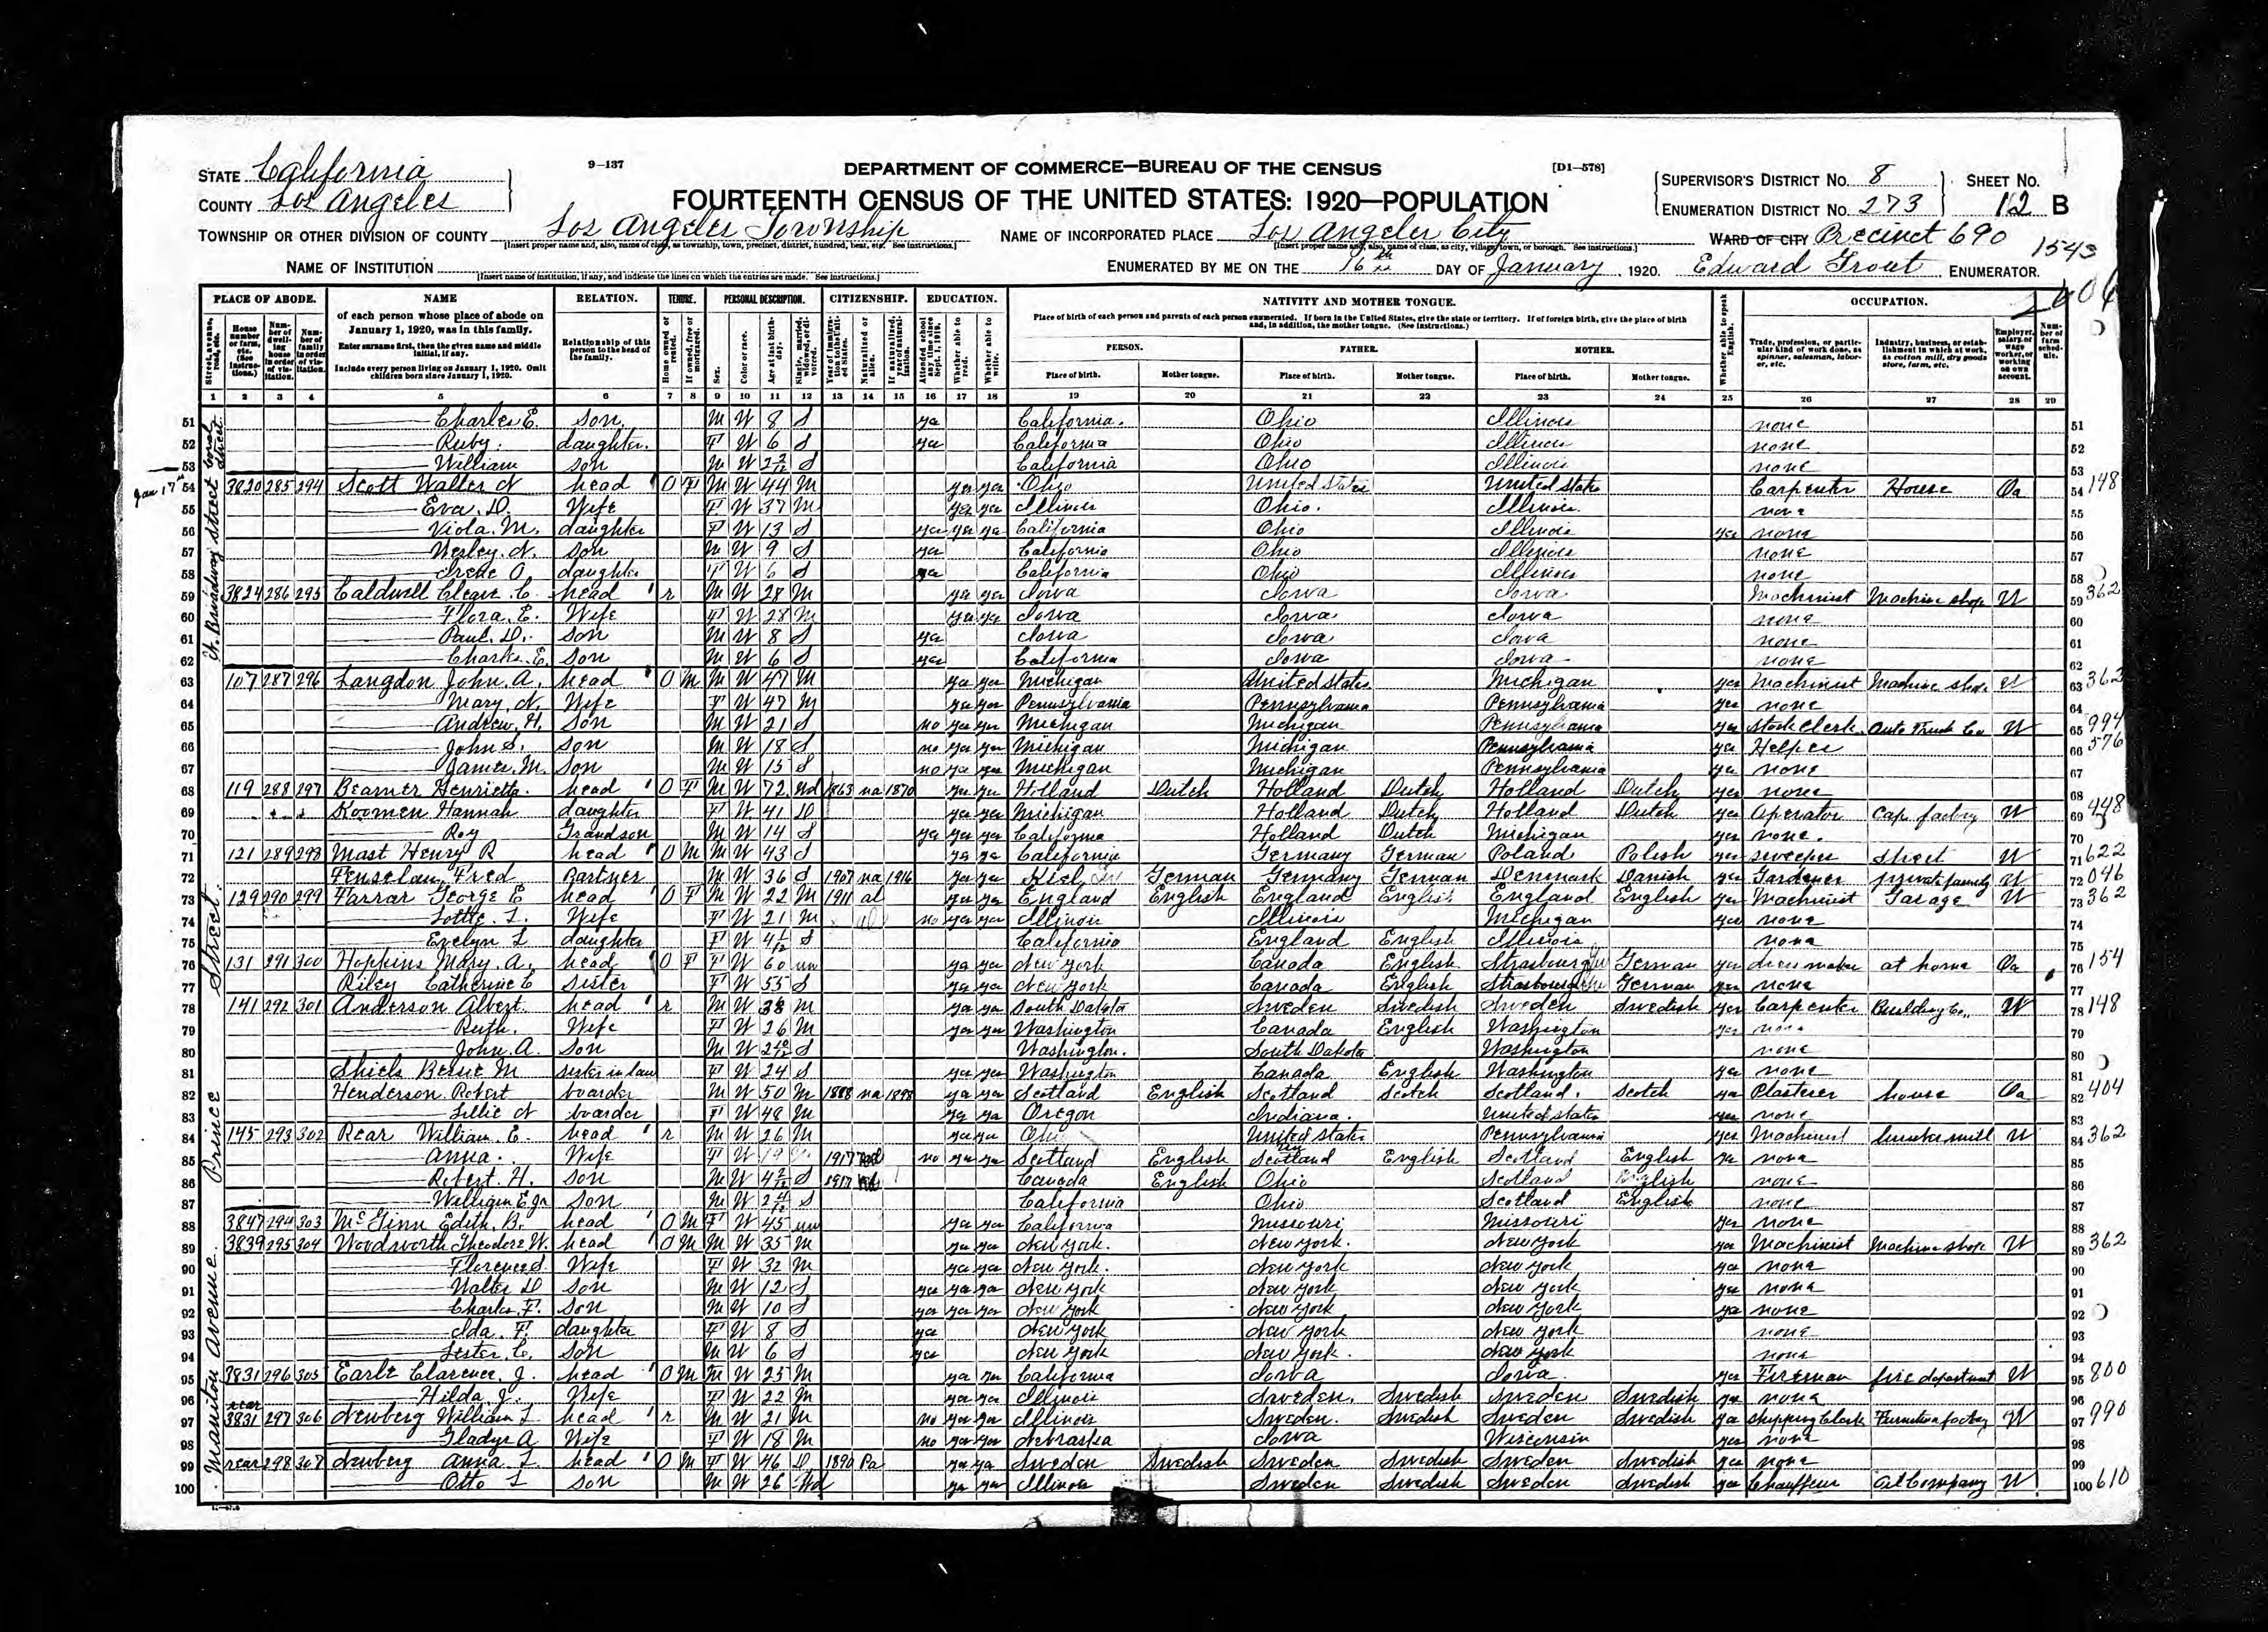 9-137
DEPARTMENT OF COMMERCE—BUREAU OF THE CENSUS
[D1-578]
STATE California
COUNTY Los Angeles
FOURTEENTH CENSUS OF THE UNITED STATES: 1920—POPULATION
SUPERVISOR'S DISTRICT No. 8
SHEET No.
ENUMERATION DISTRICT No. 273
12 B
TOWNSHIP OR OTHER DIVISION OF COUNTY Los Angeles Township
NAME OF INCORPORATED PLACE Los Angeles City
WARD OF CITY Precinct 690
1543
NAME OF INSTITUTION
ENUMERATED BY ME ON THE 16th DAY OF January, 1920. Edward Trout ENUMERATOR.
PLACE OF ABODE. NAME RELATION. TENURE. PERSONAL DESCRIPTION. CITIZENSHIP. EDUCATION. NATIVITY AND MOTHER TONGUE. OCCUPATION.
of each person whose place of abode on January 1, 1920, was in this family.
Enter surname first, then the given name and middle initial, if any.
Include every person living on January 1, 1920. Omit children born since January 1, 1920.
Relationship of this person to the head of the family.
Place of birth of each person and parents of each person enumerated. If born in the United States, give the state or territory. If of foreign birth, give the place of birth and, in addition, the mother tongue. (See instructions.)
PERSON. FATHER. MOTHER.
Place of birth. Mother tongue. Place of birth. Mother tongue. Place of birth. Mother tongue.
1 2 3 4 5 6 7 8 9 10 11 12 13 14 15 16 17 18 19 20 21 22 23 24 25 26 27 28 29
51 Charles E. son M W 8 S yes California. Ohio Illinois none 51
52 Ruby. daughter. F W 6 S yes California Ohio Illinois none 52
53 William son M W 2 2/12 S California Ohio Illinois none 53
Jan 17th
54 3820 285 294 Scott Walter N head O F M W 44 M yes yes Ohio United States United States Carpenter House Oa 54 148
55 Eva. D. Wife F W 37 M yes yes Illinois Ohio. Illinois. none 55
56 Viola. M. daughter F W 13 S yes yes yes California Ohio Illinois yes none 56
57 Wesley. N. Son M W 9 S yes California Ohio Illinois none 57
58 Irene O daughter F W 6 S yes California Ohio Illinois none 58
59 3824 286 295 Caldwell Cleave. C. head r M W 28 M yes yes Iowa Iowa Iowa Machinist Machine shop W 59 362
60 Flora. E. Wife F W 28 M yes yes Iowa Iowa Iowa none 60
61 Paul. D. Son M W 8 S yes Iowa Iowa Iowa none 61
62 Charles. E. Son M W 6 S yes California Iowa Iowa none 62
63 107 287 296 Langdon John. A. head O M M W 47 M yes yes Michigan United States Michigan yes Machinist Machine shop W 63 362
64 Mary. N. Wife F W 47 M yes yes Pennsylvania Pennsylvania Pennsylvania yes none 64
65 Andrew. H. Son M W 21 S no yes yes Michigan Michigan Pennsylvania yes Stock Clerk Auto Truck Co W 65 994
66 John S. Son M W 18 S no yes yes Michigan Michigan Pennsylvania yes Helper 66 576
67 James. M. Son M W 15 S no yes yes Michigan Michigan Pennsylvania yes none 67
68 119 288 297 Beamer Henrietta. head O F M W 72 Wd 1863 na 1870 yes yes Holland Dutch Holland Dutch Holland Dutch yes none 68
69 Koomen Hannah daughter F W 41 D yes yes Michigan Holland Dutch Holland Dutch yes Operator Cap factory W 69 448
70 Roy Grandson M W 14 S yes yes yes California Holland Dutch Michigan yes none. 70
71 121 289 298 Mast Henry R head O M M W 43 S ya ya California Germany German Poland Polish yes sweeper street W 71 622
72 Penselau Fred Partner M W 36 S 1907 na 1916 yes yes Kiel German Germany German Denmark Danish yes Gardener private family W 72 046
73 129 290 299 Farrar George E head O F M W 22 M 1911 al yes yes England English England English England English yes Machinist Garage W 73 362
74 Lottie. L. Wife F W 21 M no yes yes Illinois Illinois Michigan yes none 74
75 Evelyn L daughter F W 4 1/12 S California England English Illinois none 75
76 131 291 300 Hopkins Mary. A. head O F F W 60 un ya yes New York Canada English Strasbourg German yes dress maker at home Oa 76 154
77 Riley Catherine E sister F W 55 S ya yes New York Canada English Strasbourg German yes none 77
78 141 292 301 Anderson Albert. head r M W 38 M ya yes South Dakota Sweden Swedish Sweden Swedish yes Carpenter Building Co. W 78 148
79 Ruth. Wife F W 26 M yes yes Washington Canada English Washington yes none 79
80 John. A. Son M W 2 10/12 S Washington. South Dakota Washington none 80
81 Shiels Bessie M sister in law F W 24 S yes yes Washington Canada English Washington yes none 81
82 Henderson. Robert boarder M W 50 M 1888 na 1898 ya yes Scotland English Scotland Scotch Scotland. Scotch yes Plasterer house Oa 82 404
83 Lillie N boarder F W 48 M ya ya Oregon Indiana. United States yes none 83
84 145 293 302 Rear William. E. head r M W 26 M yes yes Ohio United States Pennsylvania yes Machinist lumber mill W 84 362
85 Anna. Wife F W 19 1917 no yes yes Scotland English Scotland English Scotland English ya none 85
86 Robert. H. Son M W 4 2/12 S 1917 Canada English Ohio Scotland English none 86
87 William E jr Son M W 2 4/12 S California Ohio Scotland English none 87
88 3847 294 303 McGinn Edith. B. head O M F W 45 un yes yes California Missouri Missouri yes none 88
89 3839 295 304 Woodsworth Theodore W. head O M M W 35 M yes yes New York. New York. New York yes Machinist Machine shop W 89 362
90 Florence S. Wife F W 32 M yes yes New York. New York New York yes none 90
91 Walter D Son M W 12 S yes yes yes New York New York New York yes none 91
92 Charles. F. Son M W 10 S yes yes yes New York New York New York ya none 92
93 Ida. F. daughter F W 8 S yes New York New York New York none 93
94 Lester. C. Son M W 6 S yes New York New York. New York none 94
95 3831 296 305 Earle Clarence. J. head O M M W 25 M ya yes California Iowa Iowa yes Fireman fire department W 95 800
96 Hilda J. Wife F W 22 M ya yes Illinois Sweden. Swedish Sweden Swedish ya none 96
97 rear 3831 297 306 Newberg William L head r M W 21 M no yes yes Illinois Sweden. Swedish Sweden Swedish ya shipping Clerk Furniture factory W 97 990
98 Gladys A Wife F W 18 M no yes yes Nebraska Iowa Wisconsin yes none 98
99 rear 298 307 Newberg Anna. L head O M F W 46 D 1890 Pa yes ya Sweden Swedish Sweden Swedish Sweden Swedish yes none 99
100 Otto L son M W 26 Wd ya yes Illinois Sweden Swedish Sweden Swedish yes Chauffeur Oil Company W 100 610
Prince Street.
Manitou Avenue.